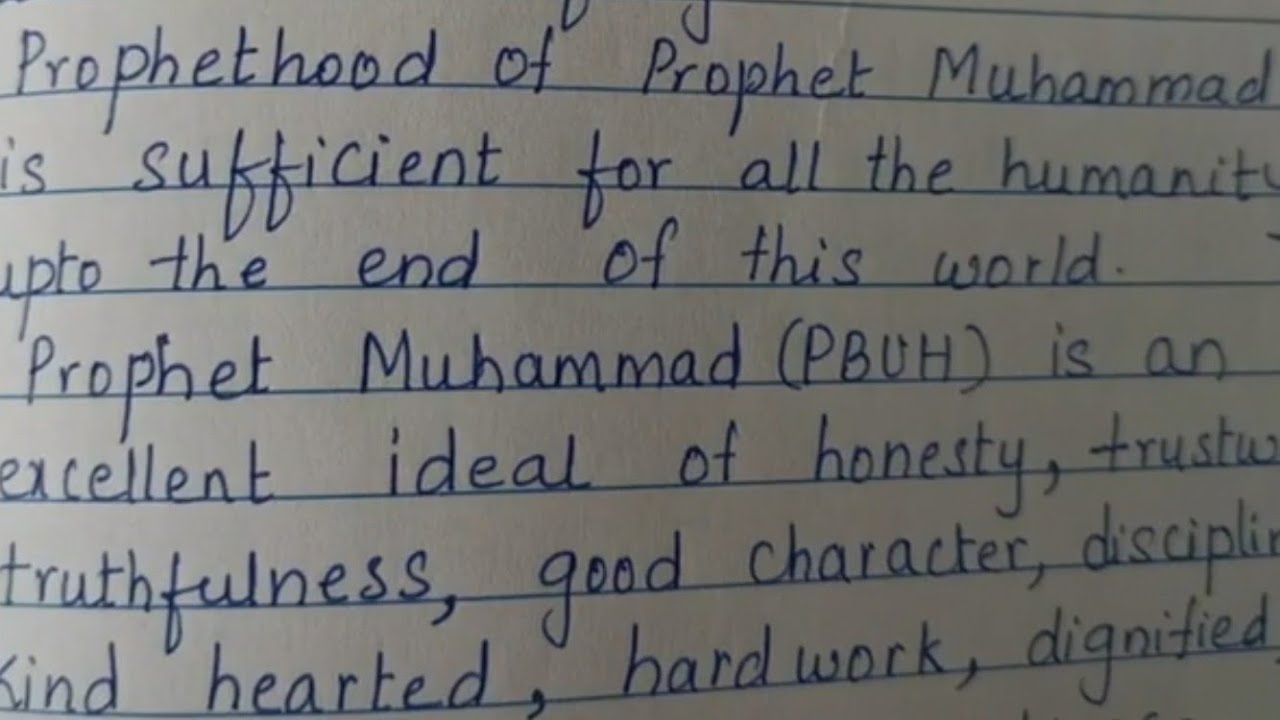 Prophethood of Prophet Muhammad
is sufficient for all the humanity
upto the end of this world.
Prophet Muhammad (PBUH) is an
excellent ideal of honesty, trustw
truthfulness, good character, disciplin
kind hearted, hard work, dignified,